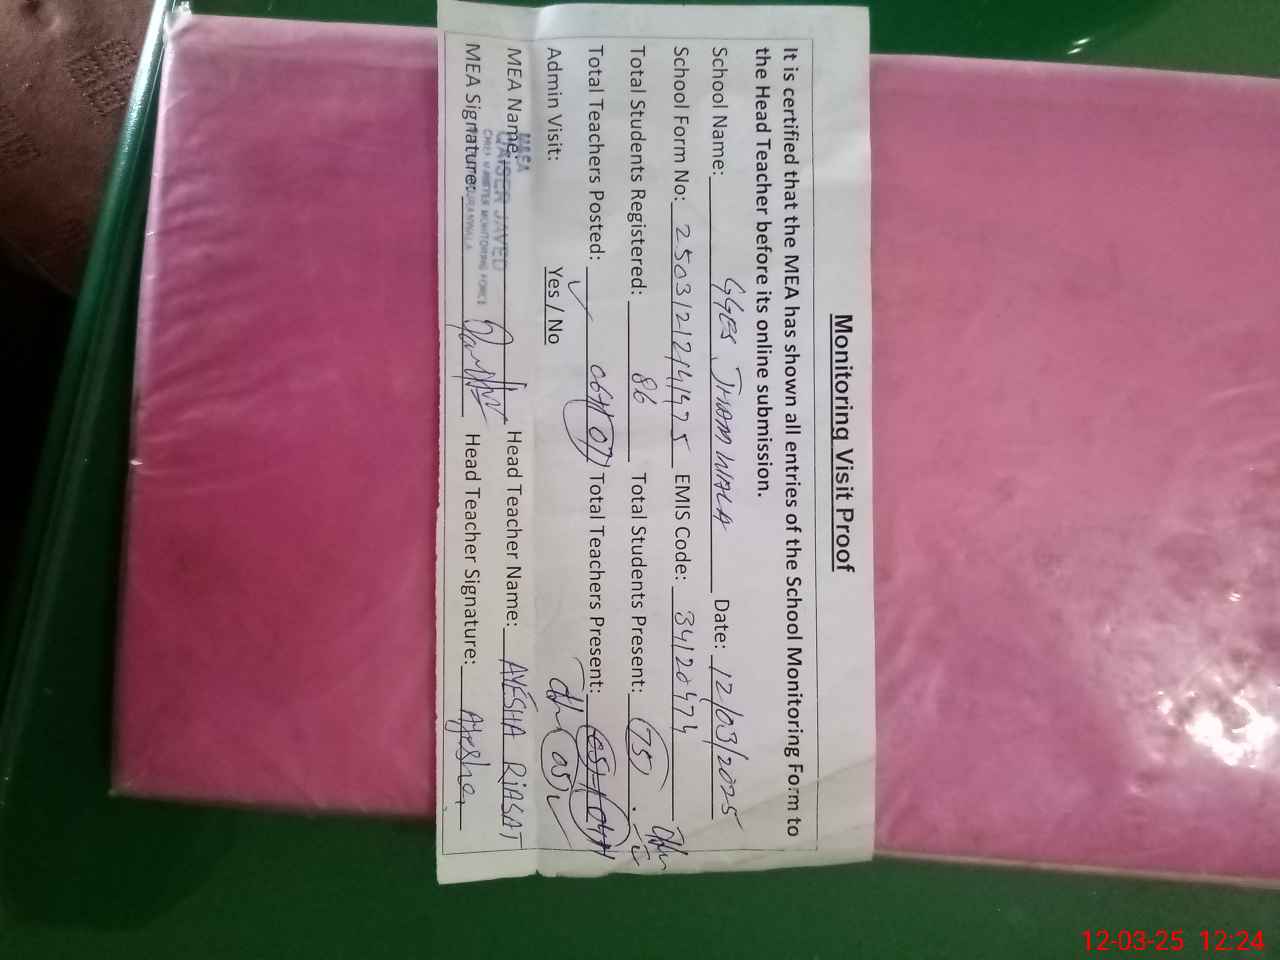 Monitoring Visit Proof
It is certified that the MEA has shown all entries of the School Monitoring Form to
the Head Teacher before its online submission.
School Name: GGES JHAM WALA Date: 12/03/2025
School Form No: EMIS Code: 34120474
Total Students Registered: 86 Total Students Present: 75
Total Teachers Posted: 07 Total Teachers Present:
05
Admin Visit: Yes / No
MEA Name: Head Teacher Name: AYESHA RIASAT
M&EA
QAISER JAVED
CHIEF MINISTER MONITORING FORCE
MEA Signature: Head Teacher Signature: Ayesha
12-03-25 12:24